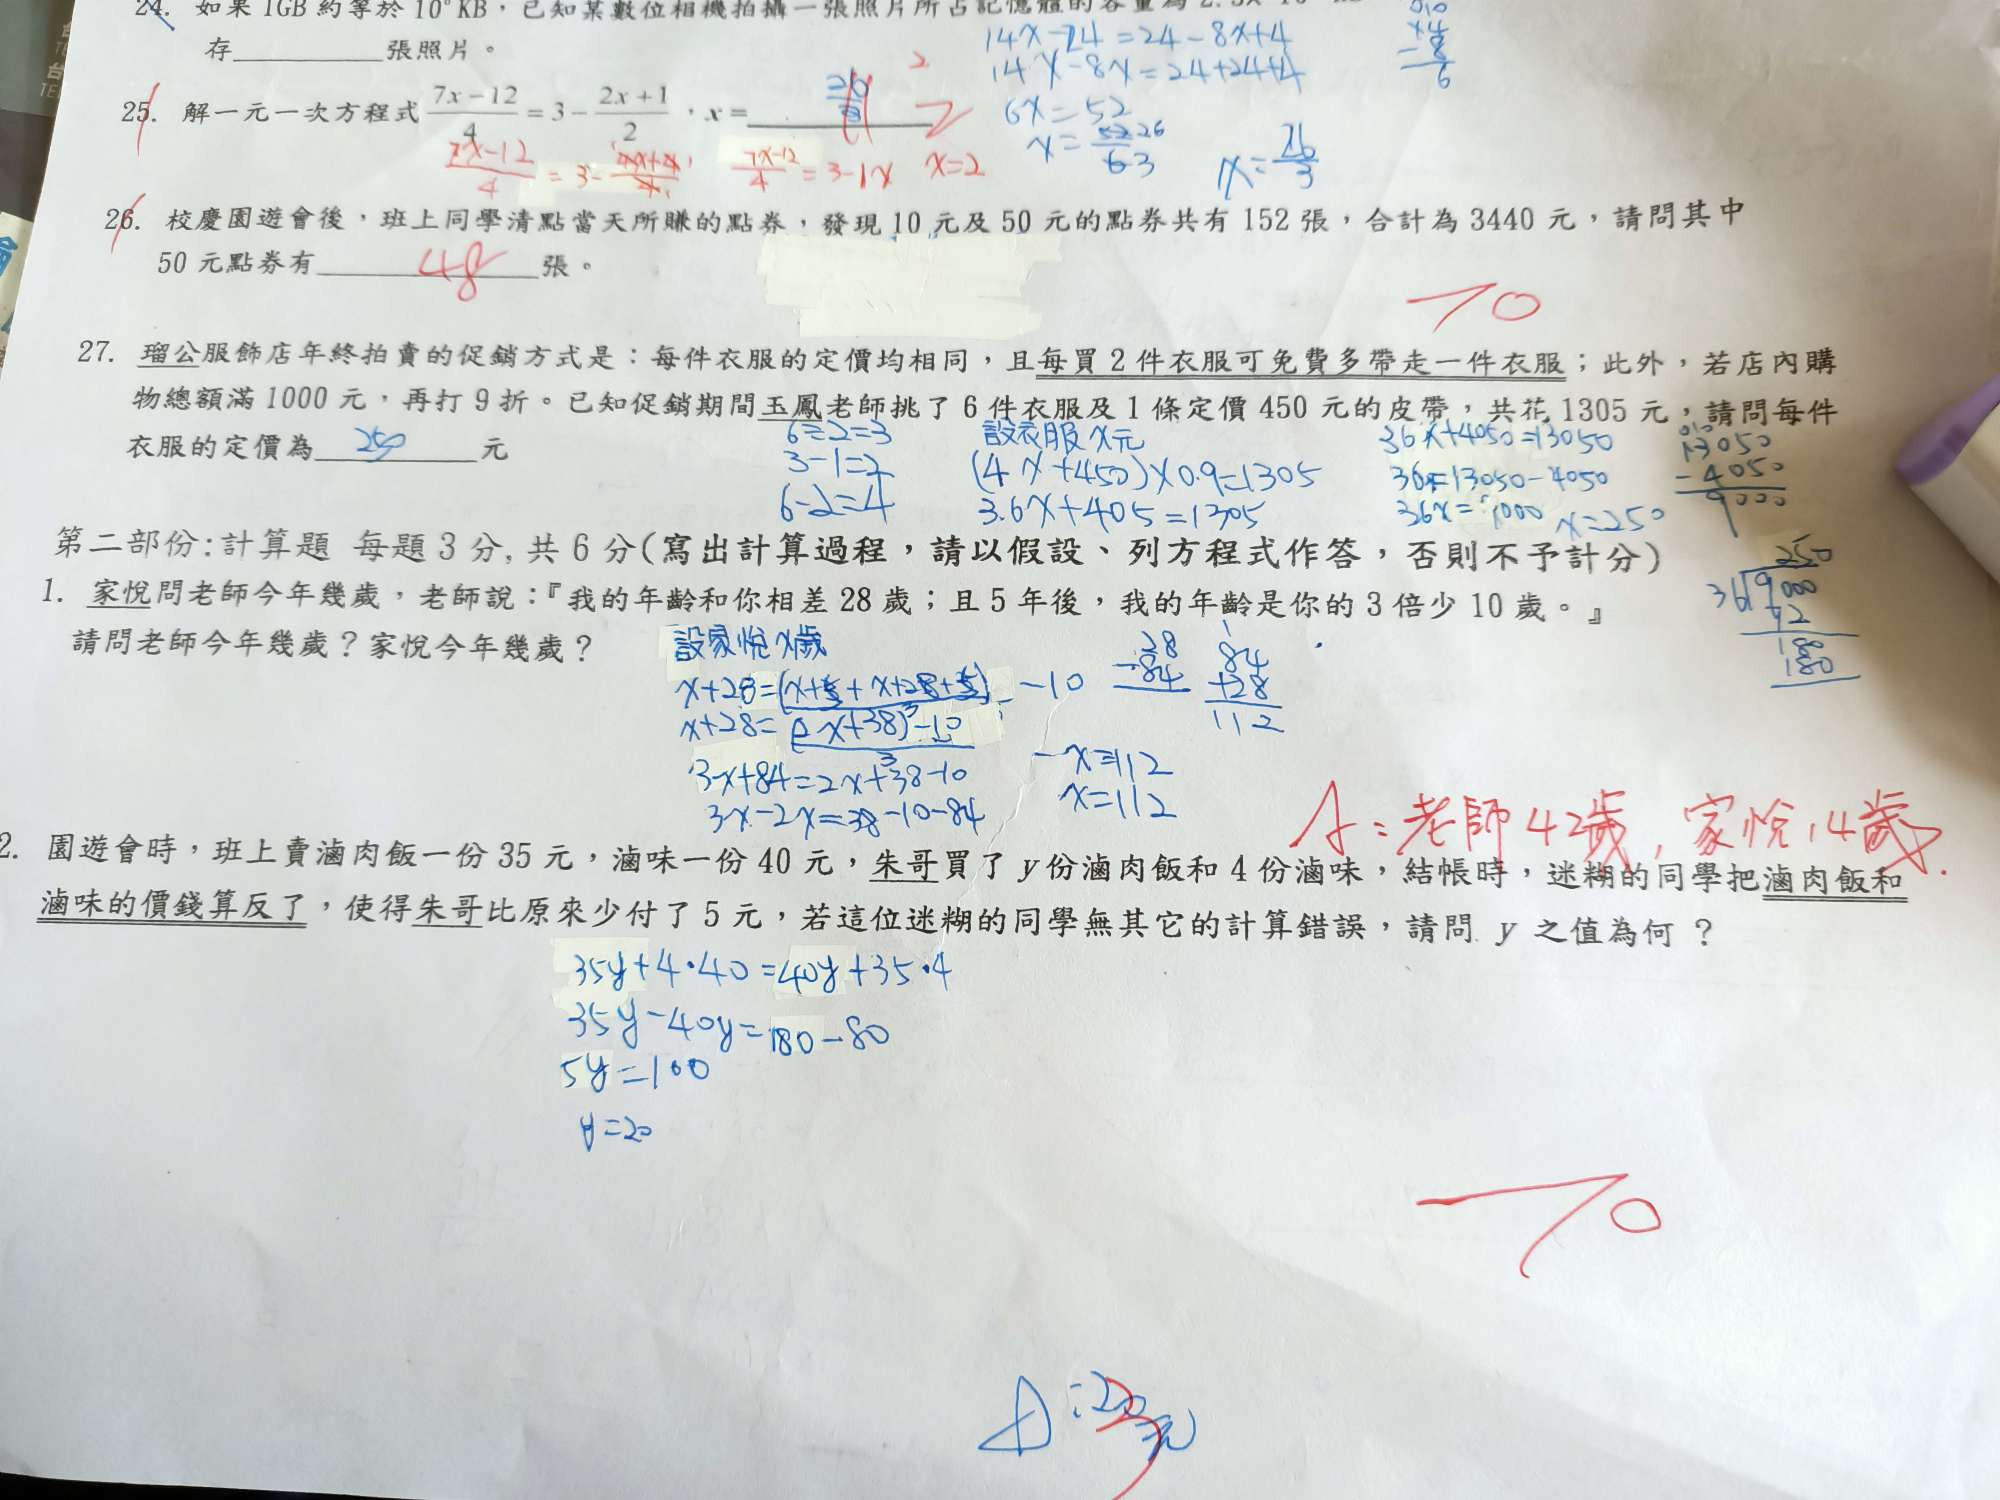 24. 如果 1GB 約等於 10⁶KB，已知某數位相機拍攝一張照片所占記憶體的容量為
存________張照片。
14x-24=24-8x+4
14x-8x=24+24+4
6x=52
x=26/3
25. 解一元一次方程式 (7x-12)/4 = 3 - (2x+1)/2 ，x=
2
(7x-12)/4 = 3-
(7x-12)/4 = 3-1x x=2
26. 校慶園遊會後，班上同學清點當天所賺的點券，發現 10 元及 50 元的點券共有 152 張，合計為 3440 元，請問其中
50 元點券有 48 張。
-70
27. 瑠公服飾店年終拍賣的促銷方式是：每件衣服的定價均相同，且每買 2 件衣服可免費多帶走一件衣服；此外，若店內購
物總額滿 1000 元，再打 9 折。已知促銷期間玉鳳老師挑了 6 件衣服及 1 條定價 450 元的皮帶，共花 1305 元，請問每件
衣服的定價為 250 元
6÷2=3
3-1=2
6-2=4
設衣服x元
(4x+450)×0.9=1305
3.6x+405=1305
36x+4050=13050
36x=13050-4050
36x=9000 x=250
13050
-4050
9000
250
36 9000
72
180
180
第二部份:計算題 每題 3 分, 共 6 分(寫出計算過程，請以假設、列方程式作答，否則不予計分)
1. 家悅問老師今年幾歲，老師說：『我的年齡和你相差 28 歲；且 5 年後，我的年齡是你的 3 倍少 10 歲。』
請問老師今年幾歲？家悅今年幾歲？
設家悅x歲
x+28=(x+5+x+28+5) -10
x+28=(2x+38)-10
3
3x+84=2x+38-10
3x-2x=38-10-84
-x=112
x=112
84
+28
112
A：老師42歲，家悅14歲.
2. 園遊會時，班上賣滷肉飯一份 35 元，滷味一份 40 元，朱哥買了 y 份滷肉飯和 4 份滷味，結帳時，迷糊的同學把滷肉飯和
滷味的價錢算反了，使得朱哥比原來少付了 5 元，若這位迷糊的同學無其它的計算錯誤，請問 y 之值為何？
35y+4·40=40y+35·4
35y-40y=180-80
5y=100
y=20
-70
A：20元